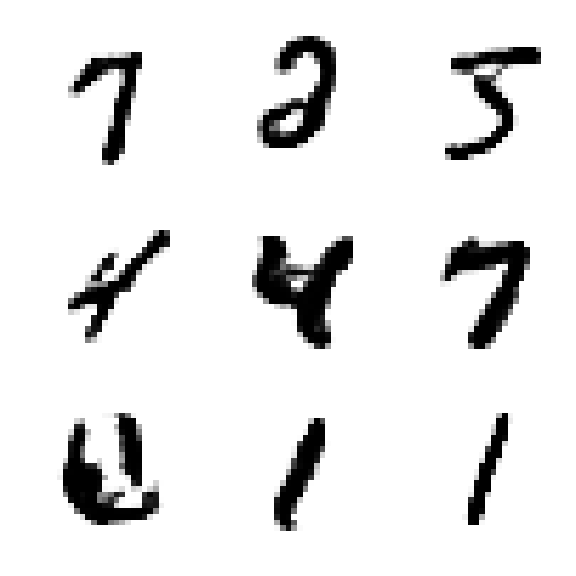 7 2 5
4 4 7
1 1